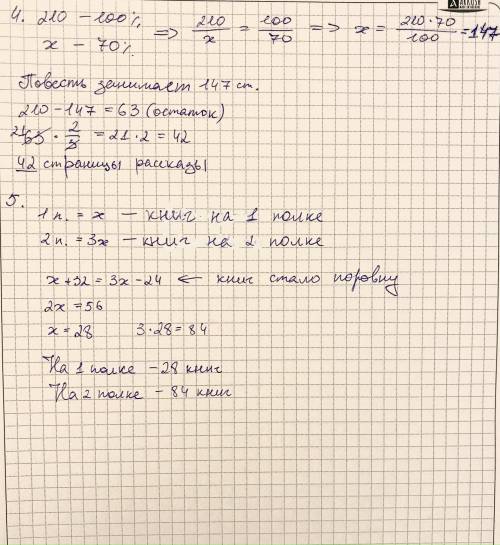 4. 210 – 100% => 210/x = 100/70 => x = 210·70/100 = 147
x – 70%
Повесть занимает 147 ст.
210 – 147 = 63 (остаток)
21 63 · 2/3 = 21 · 2 = 42
42 страницы рассказы
5.
1 п. = x – книг на 1 полке
2 п. = 3x – книг на 2 полке
x + 32 = 3x – 24 ← книг стало поровну
2x = 56
x = 28 3 · 28 = 84
На 1 полке – 28 книг
На 2 полке – 84 книг